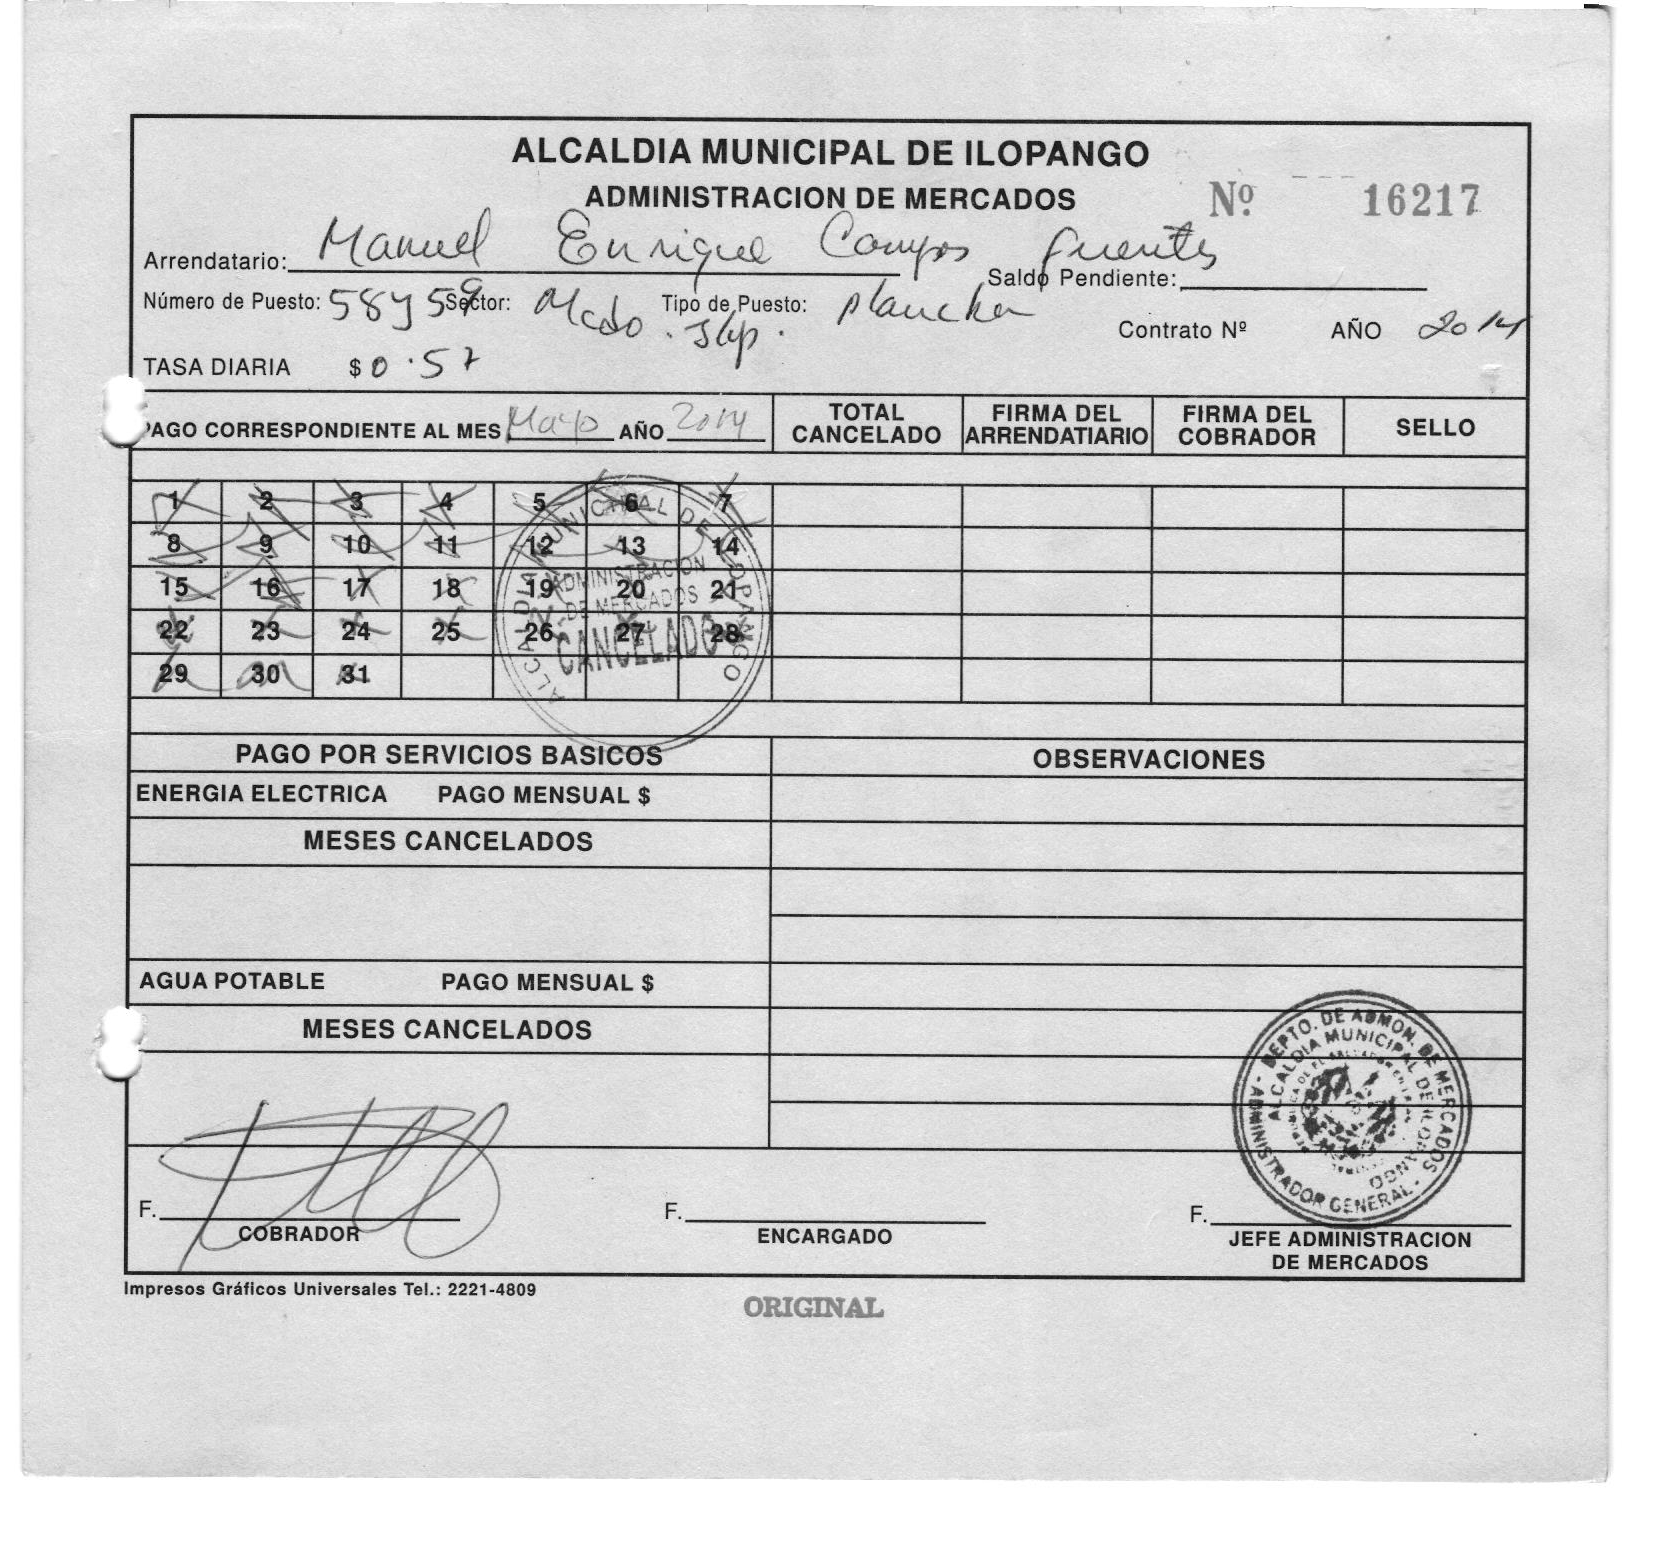 ALCALDIA MUNICIPAL DE ILOPANGO
ADMINISTRACION DE MERCADOS
Nº. 16217
Arrendatario: Manuel Enrique Campos Fuentes
Saldo Pendiente:
Número de Puesto: 58 y 59 Sector: Mcdo. Ilop. Tipo de Puesto: plancha
Contrato Nº AÑO 2014
TASA DIARIA $ 0.57
PAGO CORRESPONDIENTE AL MES Mayo AÑO 2014
TOTAL CANCELADO
FIRMA DEL ARRENDATIARIO
FIRMA DEL COBRADOR
SELLO
1 2 3 4 5 6 7
8 9 10 11 12 13 14
15 16 17 18 19 20 21
22 23 24 25 26 27 28
29 30 31
ALCALDIA MUNICIPAL DE ILOPANGO
ADMINISTRACION
DE MERCADOS
CANCELADO
PAGO POR SERVICIOS BASICOS
OBSERVACIONES
ENERGIA ELECTRICA PAGO MENSUAL $
MESES CANCELADOS
AGUA POTABLE PAGO MENSUAL $
MESES CANCELADOS
DEPTO. DE ADMON. DE MERCADOS
ALCALDIA MUNICIPAL DE ILOPANGO
- ADMINISTRADOR GENERAL -
F.
COBRADOR
F.
ENCARGADO
F.
JEFE ADMINISTRACION
DE MERCADOS
Impresos Gráficos Universales Tel.: 2221-4809
ORIGINAL